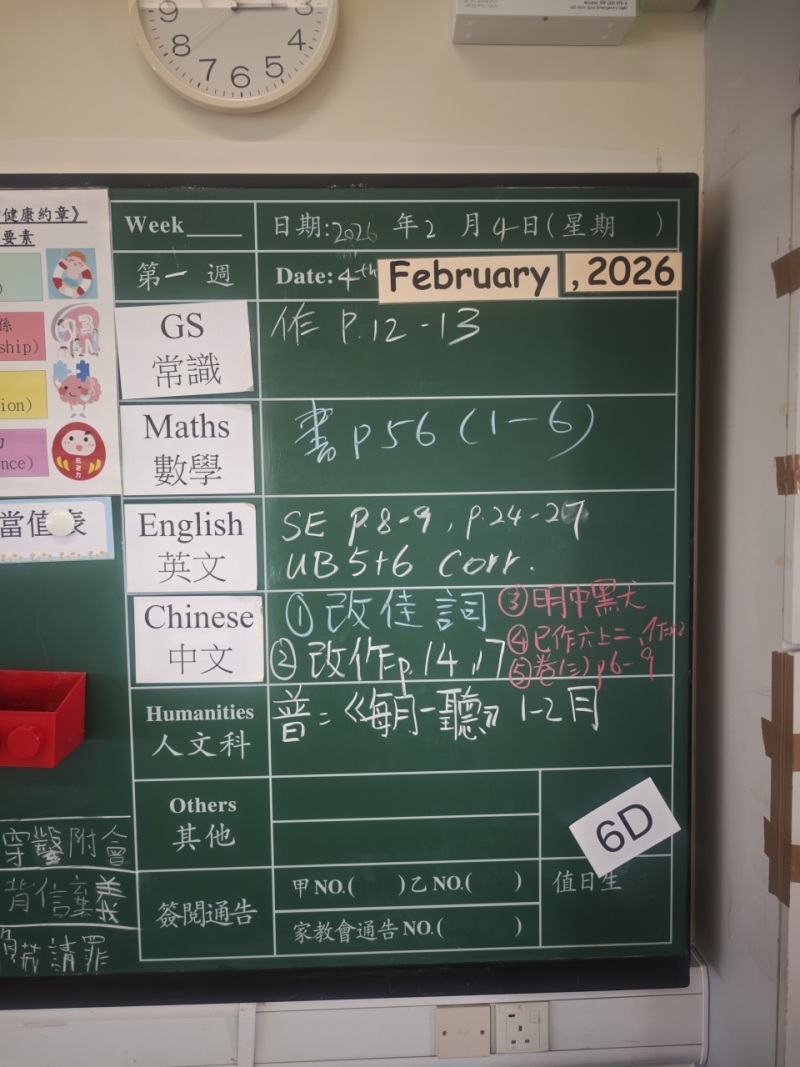 9
8
7
6
5
4
3
健康約章》
要素
係
ship)
ion)
力
nce)
當值表
Week
日期:2026 年2 月4日(星期 )
第一週
Date: 4th February , 2026
GS
常識
作 P.12-13
Maths
數學
書 P56 (1-6)
English
英文
SE P.8-9, p.24-27
UB 5+6 Corr.
Chinese
中文
① 改佳詞
② 改作p.14,17
③ 明中黑犬
④ 已作六上二,作
⑤ 卷(三) p6-9
Humanities
人文科
普:《每月一聽》 1-2月
Others
其他
6D
簽閱通告
甲NO.( )乙NO.( )
家教會通告NO.( )
值日生
穿鑿附會
背信棄義
荊請罪